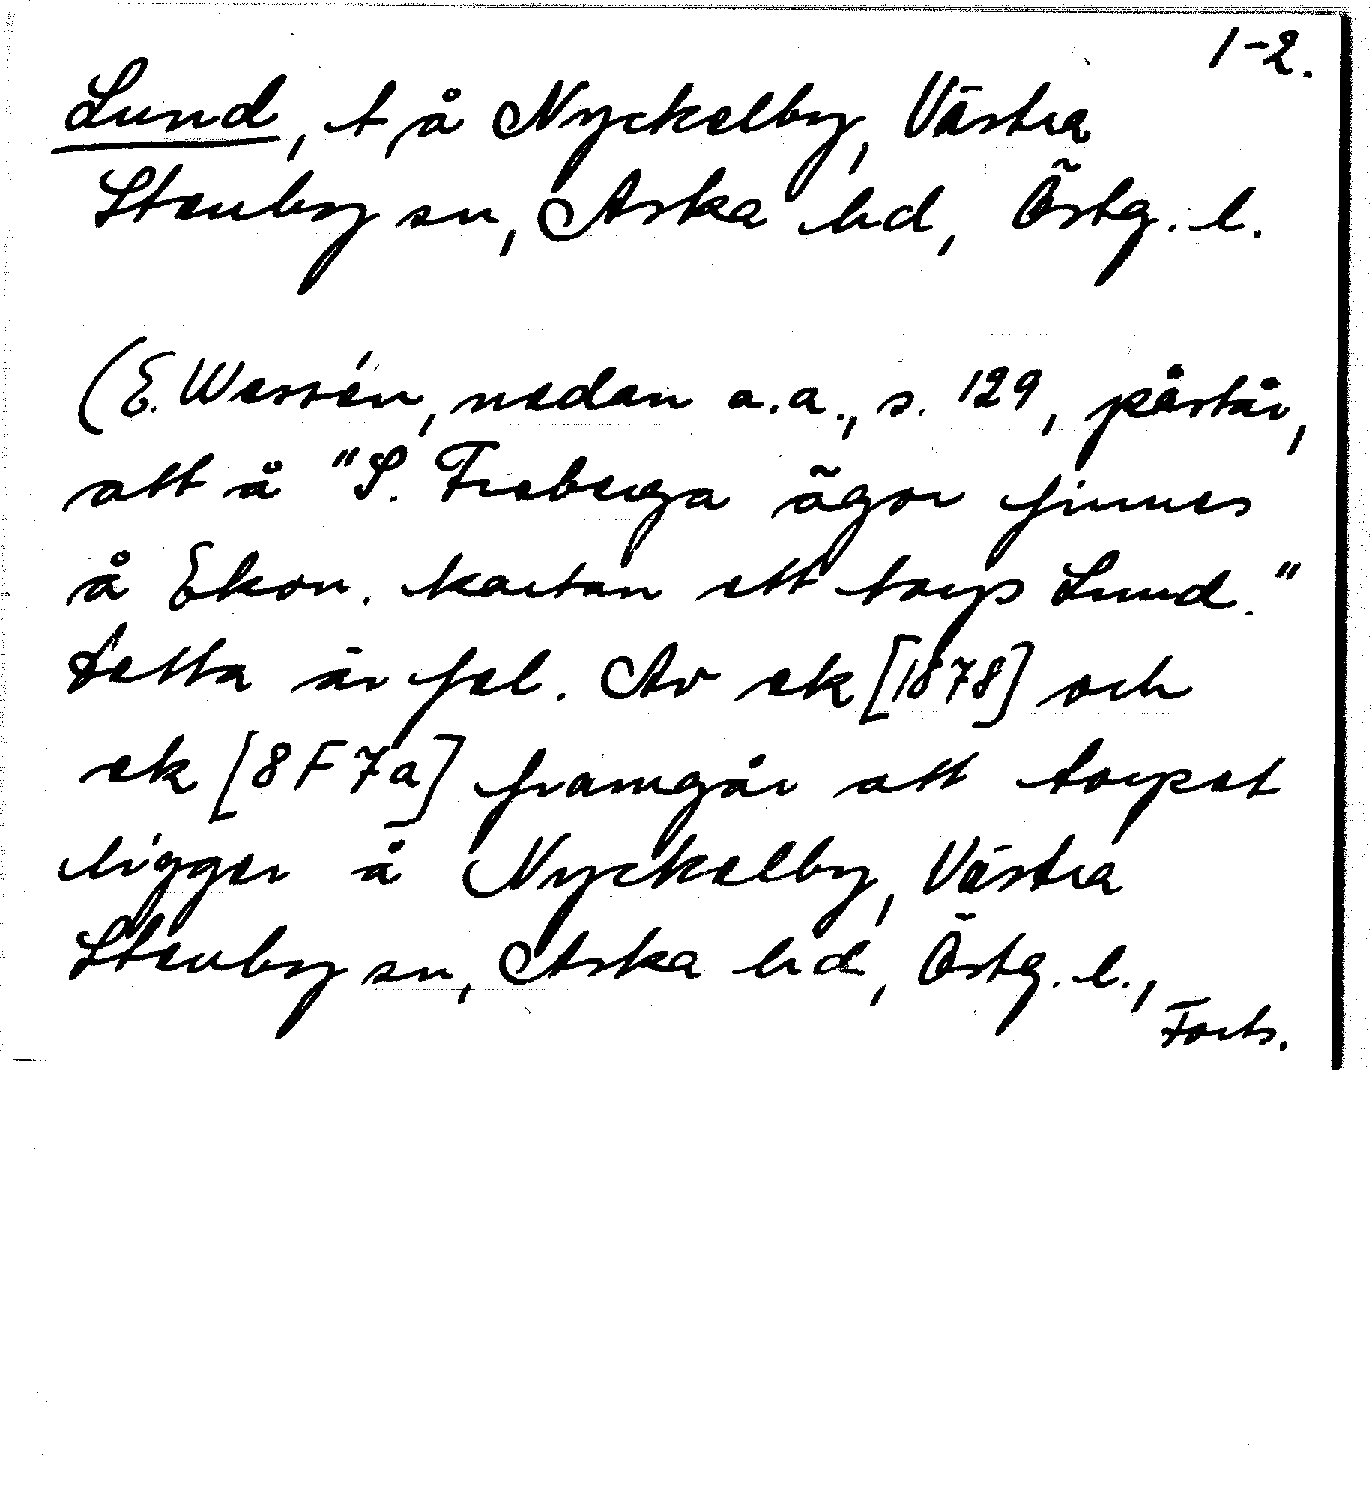 1-2.
Lund, t å Nyckelby, Västra
Stenby sn, Aska hd, Östg. l.
(E. Wessén, nedan a.a., s. 129, påstår,
att å "S. Freberga ägor finnes
å Ekon. kartan ett torp Lund."
Detta är fel. Av ek [1878] och
ek [8F7a] framgår att torpet
ligger å Nyckelby, Västra
Stenby sn, Aska hd, Östg. l.,
Forts.